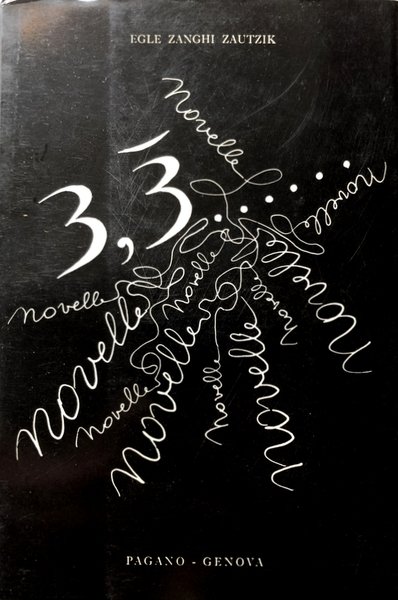 EGLE ZANGHI ZAUTZIK
novelle
3,3̄......
novelle
novelle
novelle
novelle
novelle
novelle
novelle
novelle
novelle
novelle
PAGANO - GENOVA